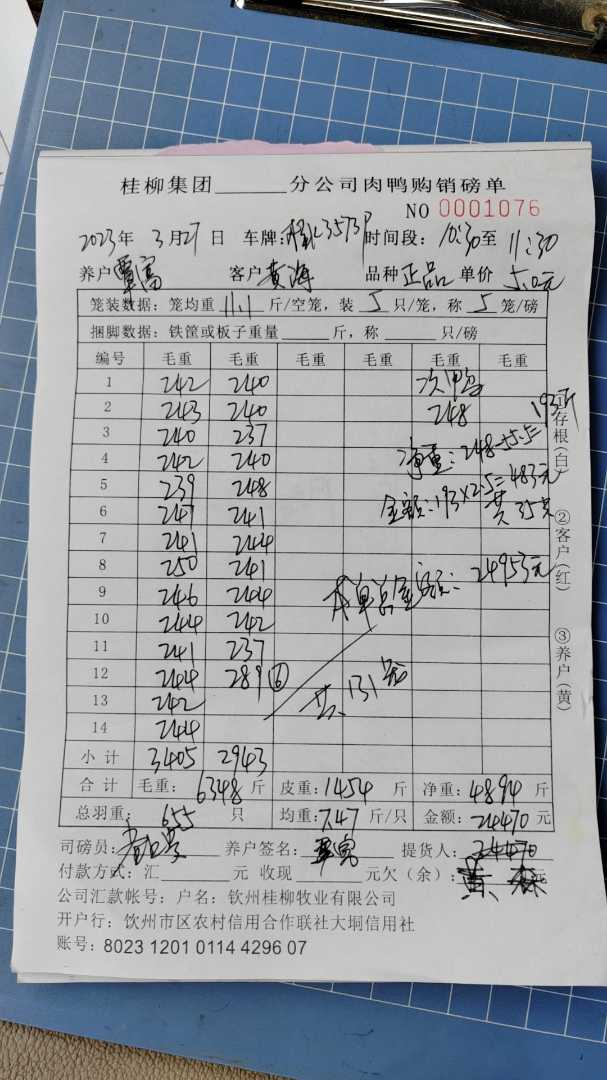 桂柳集团______分公司肉鸭购销磅单
NO 0001076
2023年 3月27日 车牌: 3573P 时间段: 10:30至 11:30
养户 覃富 客户 黄海 品种 正品 单价 5.0元
笼装数据: 笼均重 11.1 斤/空笼, 装 5 只/笼, 称 5 笼/磅
捆脚数据: 铁筐或板子重量______斤, 称______只/磅
编号 毛重 毛重 毛重 毛重 毛重
1 242 240 次鸭
2 243 240 248 193斤
3 240 237
4 242 240 净重: 248-55.5=
5 239 248 金额: 193×2.5=483元
6 241 241 共35只
7 241 244
8 250 241
9 246 244 本单总金额: 24953元
10 244 242
11 241 237
12 244 289⑥ 共131笼
13 242
14 244
小计 3405 2943
合计 毛重: 6348斤 皮重: 1454斤 净重: 4894斤
总羽重: 655只 均重: 7.47斤/只 金额: 24470元
司磅员: 养户签名: 覃富 提货人: 24470
付款方式: 汇______元 收现______元欠(余): 元
公司汇款帐号: 户名: 钦州桂柳牧业有限公司
开户行: 钦州市区农村信用合作联社大垌信用社
账号: 8023 1201 0114 4296 07
存根(白)
②客户(红)
③养户(黄)